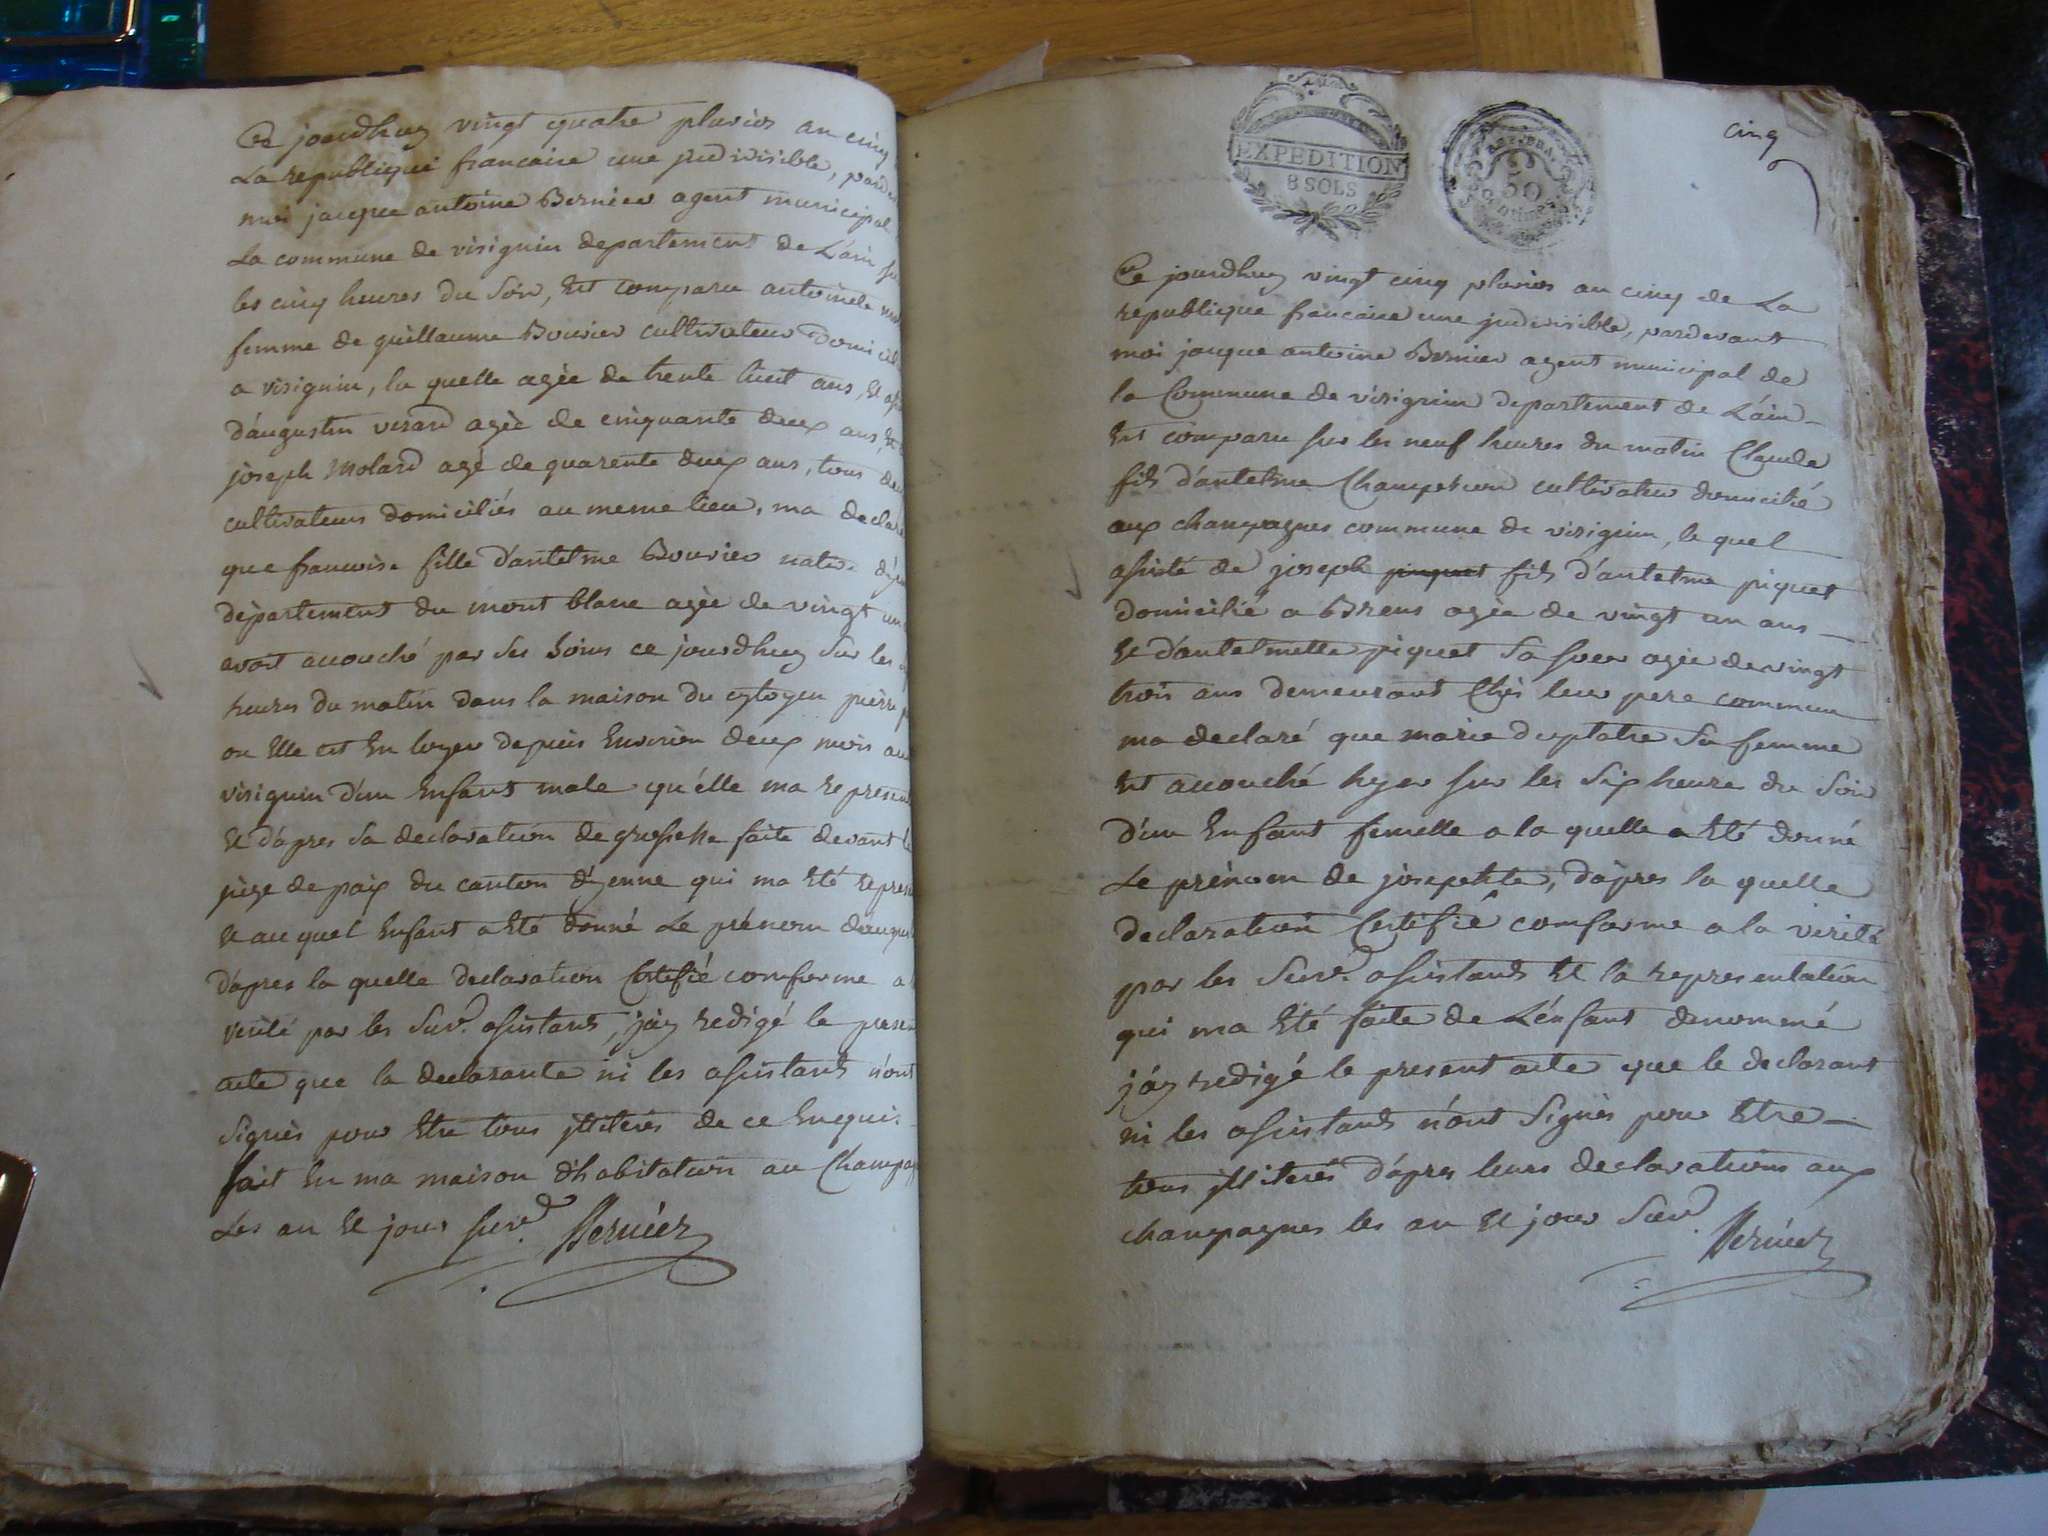 Ce jourdhuy vingt quatre pluvios an cinq
La republique francaise une indivisible, parde
moi jacque antoine Bernier agent municipal
La commune de virignin departement de L'ain su
les cinq heures du soir, Est comparu antoinete
femme de guillaume Bouvier cultivateur domicil
a virignin, la quelle agée de trente huit ans, et
d'augustin verard agèe de cinquante deux ans, et
joseph Molard agé de quarente deux ans, tous deu
cultivateurs domiciliés au meme lieu, ma declaré
que francoise fille d'antelme Bouvier native d'yen
département du mont blanc agèe de vingt un
avoit accouché par ses soins ce jourdhuy sur les
heures du matin dans la maison du cytoyen pierre
ou Elle est En loyer depuis Environ deux mois au
virignin d'un Enfant male qu'elle ma represen
Et d'apres sa declaration de grosesse faite devant le
juge de paix du canton d'yenne qui ma Eté represe
Et au quel Enfant a Eté donné Le prénom d'augus
d'apres la quelle declaration Certifié conforme a
verité par les Susd. asistants, j'ay redigé le presen
acte que la declarante ni les asistants n'ont
Signès pour Etre tous jlliterés de ce Enquis.
fait En ma maison d'habitation au Champag
Les an Et jour susd. Bernier
EXPEDITION
8 SOLS
REP. FRA.
50
Centimes
cinq
Ce jourdhuy vingt cinq pluvios an cinq de La
republique francaise une indivisible, pardevant
moi jacque antoine Bernier agent municipal de
la Commune de virignin departement de L'ain
Est comparu sur les neuf heures du matin Claude
fils d'antelme Champetion cultivateur domicilié
aux champagnes commune de virignin, le quel
asisté de joseph piquet fils d'antelme piquet
domicilié a Brens agèe de vingt un ans
Et d'antelmette piquet sa soeur agèe de vingt
trois ans demeurant Chès leur pere commun
ma declaré que marie duplatre Sa femme
Est accouché hyer sur les Six heures du Soir
d'un Enfant femelle a la quelle a Eté donné
Le prénom de josephte, d'apres la quelle
declaration Certifié conforme a la verité
par les Susd. asistants Et la representation
qui ma Eté faite de L'enfant denommé
j'ay redigé le present acte que le declarant
ni les asistants n'ont Signès pour Etre
tous jlliterés d'apres leurs declarations aux
champagnes les an Et jour Susd.
Bernier